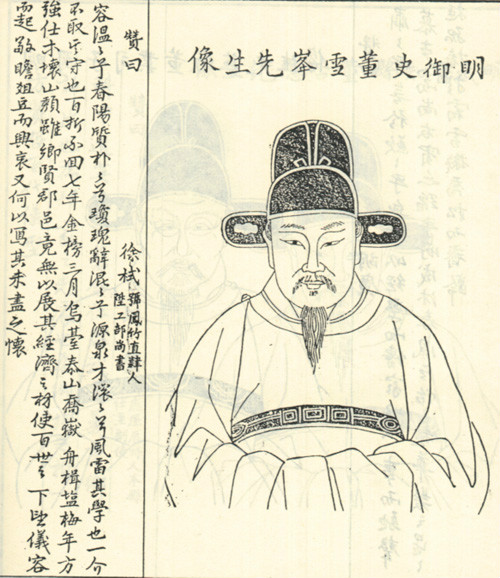 明御史董雪岑先生像
贊曰
徐栻
號鳳竹直隸人
陞工部尚書
容溫〻乎春陽質朴〻兮瓊瑰辭混〻乎源泉才渢〻兮風雷其學也一介
不取其守也百折不回七年金榜三月烏臺泰山喬嶽舟楫塩梅年方
強仕木壞山頹雖鄉賢郡邑竟無以展其經濟之材使百世之下望儀容
而起敬瞻俎豆而興哀又何以寫其未盡之懷